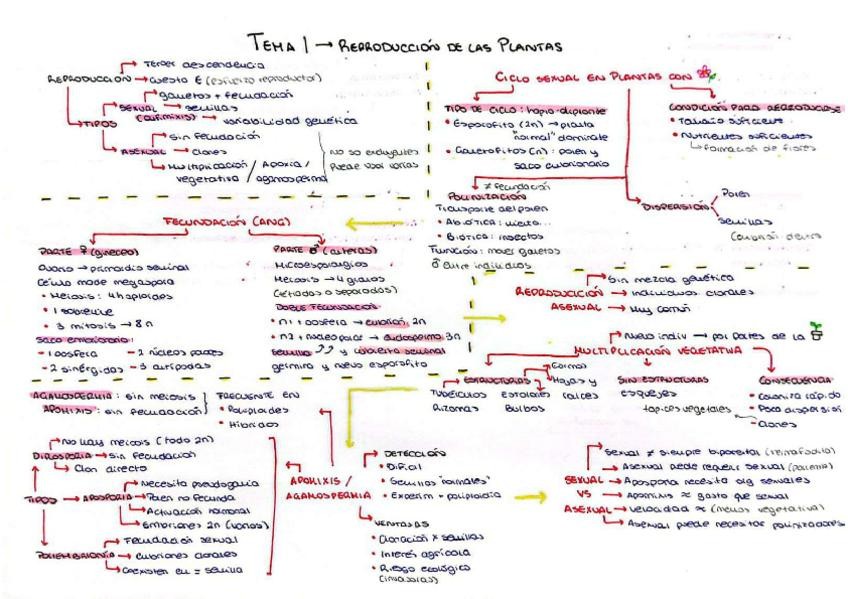 TEMA 1 → REPRODUCCIÓN DE LAS PLANTAS
REPRODUCCIÓN → Tener descendencia
→ Cuesta E (esfuerzo reproductor)
→ TIPOS
→ SEXUAL (anfimixis)
→ gametos + fecundación
→ semillas
→ variabilidad genética
→ ASEXUAL
→ Sin fecundación
→ Clones
→ Multiplicación vegetativa / Apomixia / agamospermia
No son excluyentes
Puede usar varias
CICLO SEXUAL EN PLANTAS CON
TIPO DE CICLO: haplo-diplonte
• Esporofito (2n) → planta "normal" dominante
• Gametofitos (n): polen y saco embrionario
CONDICIÓN PARA REPRODUCIRSE
• Tamaño suficiente
• Nutrientes suficientes
→ formación de flores
≠ fecundación
POLINIZACIÓN
Transporte del polen
• Abiótica: viento...
• Biótica: insectos
Función: mover gametos ♂ entre individuos
DISPERSIÓN
Polen
Semillas
FECUNDACIÓN (ANG)
PARTE ♀ (gineceo)
Ovario → primordio seminal
Célula madre megaspora
• Meiosis: 4 haploides
• 1 sobrevive
• 3 mitosis → 8 n
Saco embrionario:
- 1 oosfera - 2 núcleos polares
- 2 sinérgidas - 3 antípodas
PARTE ♂ (anteras)
Microesporangios
Meiosis → 4 granos
(tétradas o separados)
DOBLE FECUNDACIÓN
• n1 + oosfera → embrión, 2n
• n2 + núcleos polar → endospermo 3n
Semilla y cubierta seminal
germina y nuevo esporofito
REPRODUCCIÓN ASEXUAL
→ Sin mezcla genética
→ individuos clonales
→ Muy común
→ Nuevo indiv → por partes de la
MULTIPLICACIÓN VEGETATIVA
ESTRUCTURAS
Cormos
Hojas y raíces
Tubérculos estolones
Rizomas Bulbos
SIN ESTRUCTURAS
esquejes
tapices vegetales
CONSECUENCIA
• Coloniza rápido
• Poca dispersión
• Clones
AGAMOSPERMIA: sin meiosis
APOMIXIS: sin fecundación
FRECUENTE EN
• Poliploides
• Híbridos
TIPOS
DIPLOSPORIA
→ No hay meiosis (todo 2n)
→ Sin fecundación
→ Clon directo
APOSPORIA
→ Necesita pseudogamia
→ Polen no fecunda
→ Actuación hormonal
→ Embriones 2n (varios)
POLIEMBRIONÍA
→ Fecundación sexual
→ embriones clonales
→ Coexisten en = semilla
APOMIXIS / AGAMOSPERMIA
DETECCIÓN
• Difícil
• Semillas "normales"
• Experim + poliploidía
VENTAJAS
• Clonación x semillas
• Interés agrícola
• Riesgo ecológico (invasoras)
SEXUAL VS ASEXUAL
→ Sexual ≠ siempre biparental (hermafrodita)
→ Asexual puede requerir sexual
→ Aposporia necesita org sexuales
→ Apomixis ≈ gasto que sexual
→ Velocidad ≈ (menos vegetativa)
→ Asexual puede necesitar polinizadores